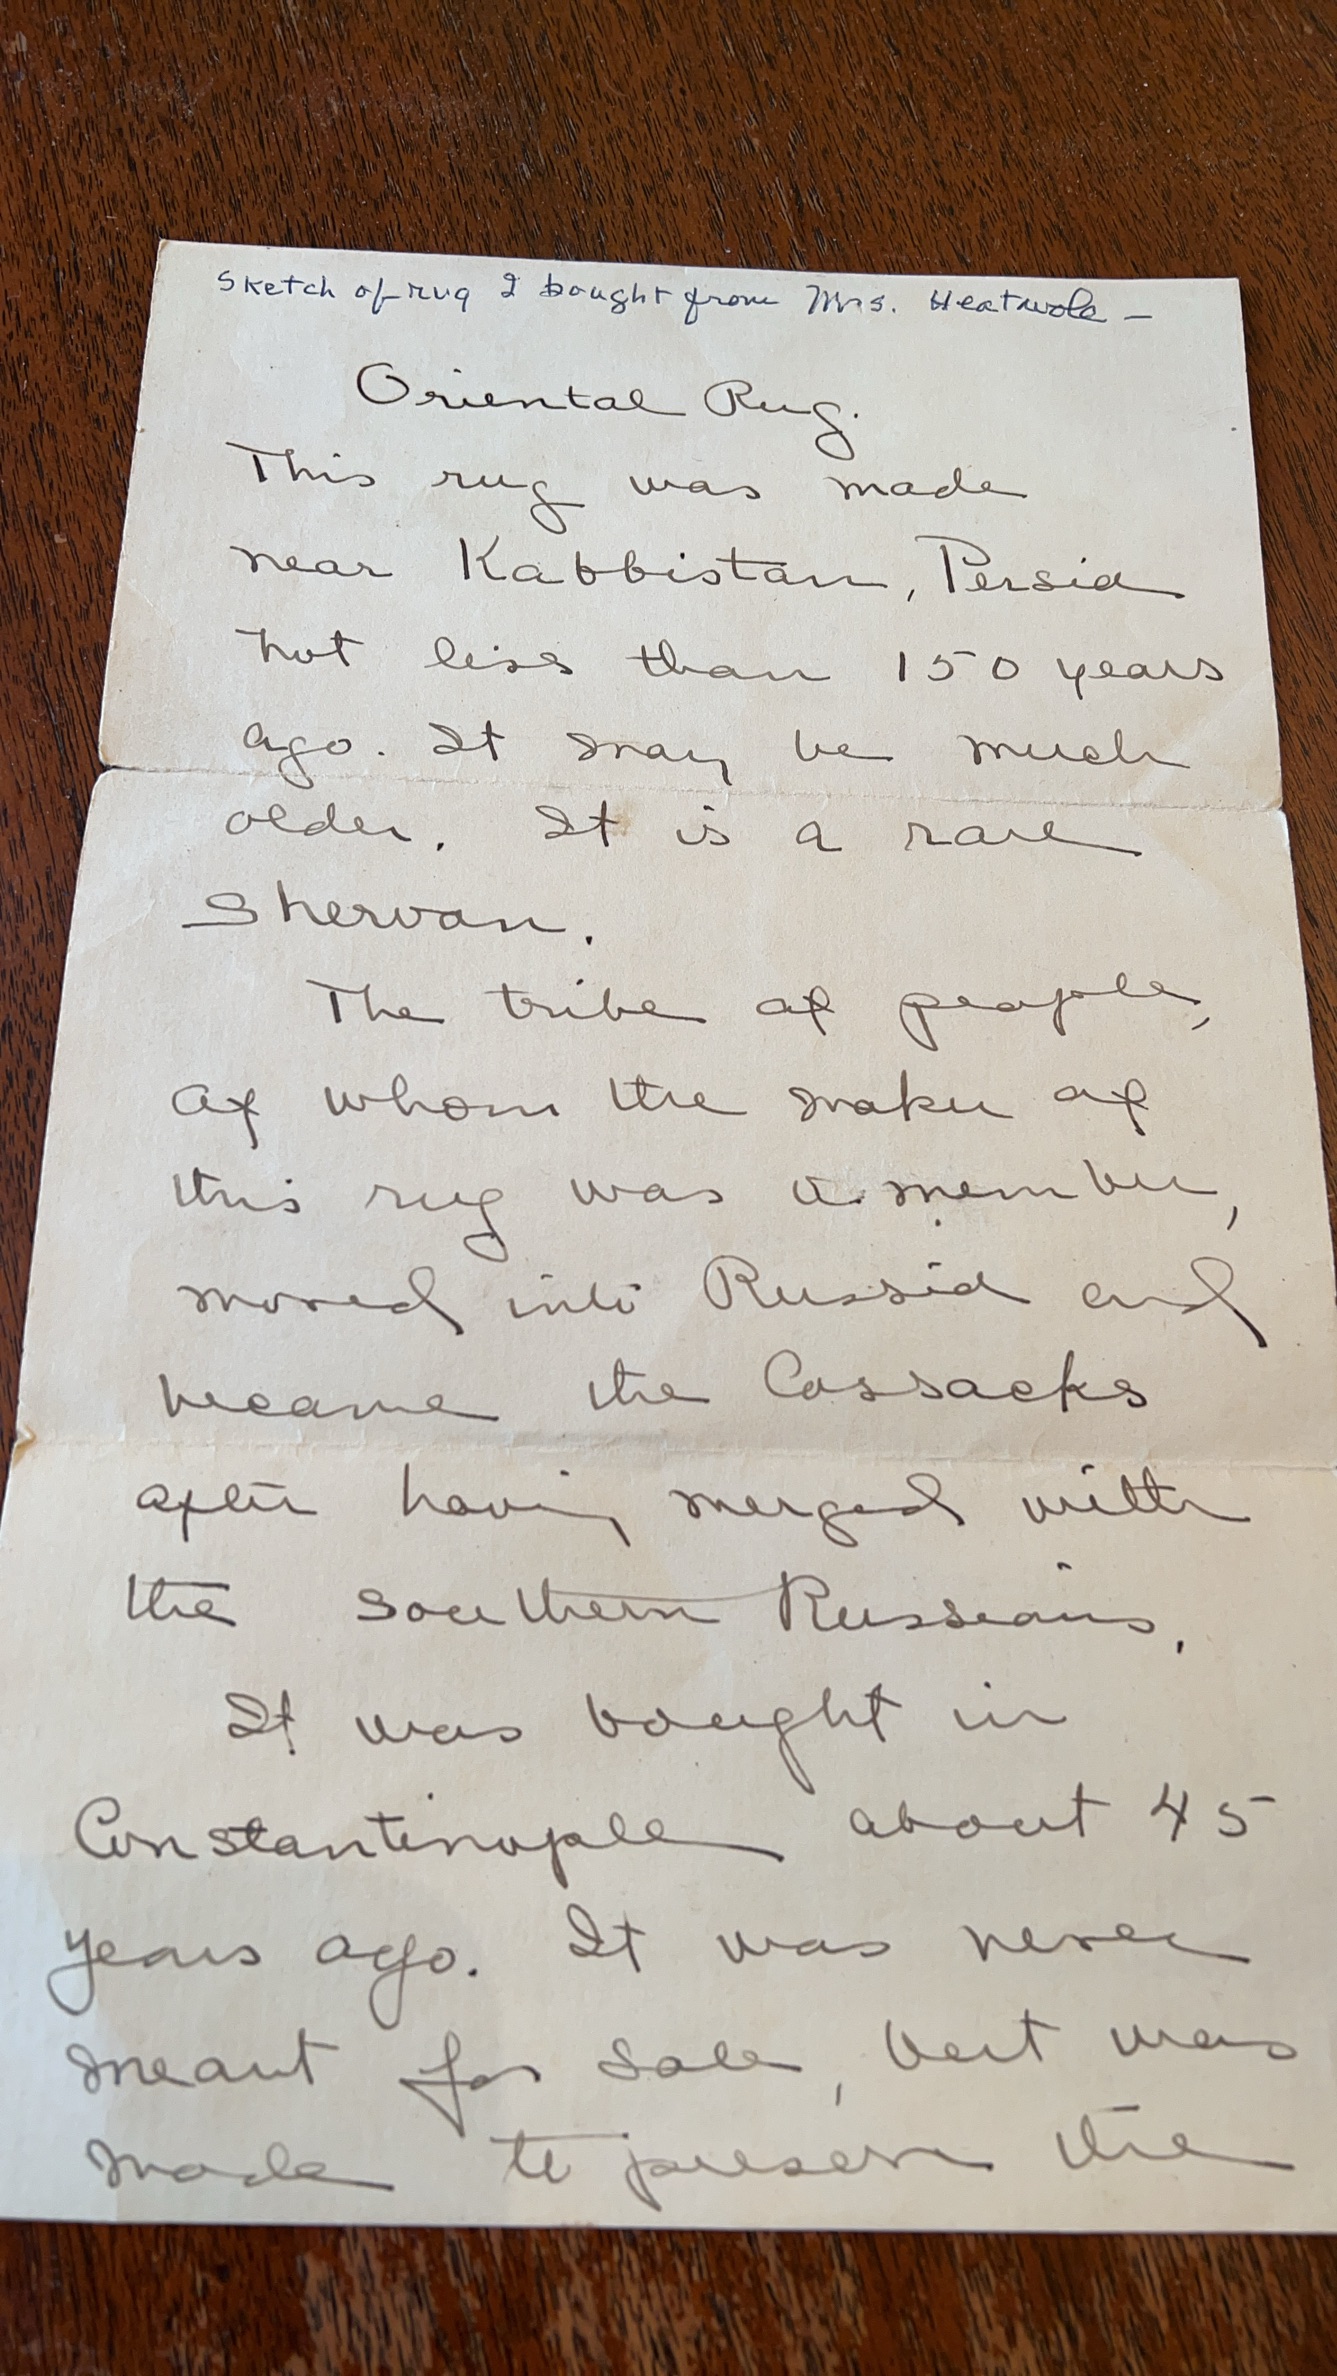 Sketch of rug I bought from Mrs. Heatwole –
Oriental Rug.
This rug was made
near Kabbistan, Persia
not less than 150 years
ago. It may be much
older. It is a rare
Shervan.
The tribe of people,
of whom the maker of
this rug was a member,
moved into Russia and
became the Cossacks
after having merged with
the southern Russians.
It was bought in
Constantinople about 45
years ago. It was never
meant for sale, but was
made to preserve the